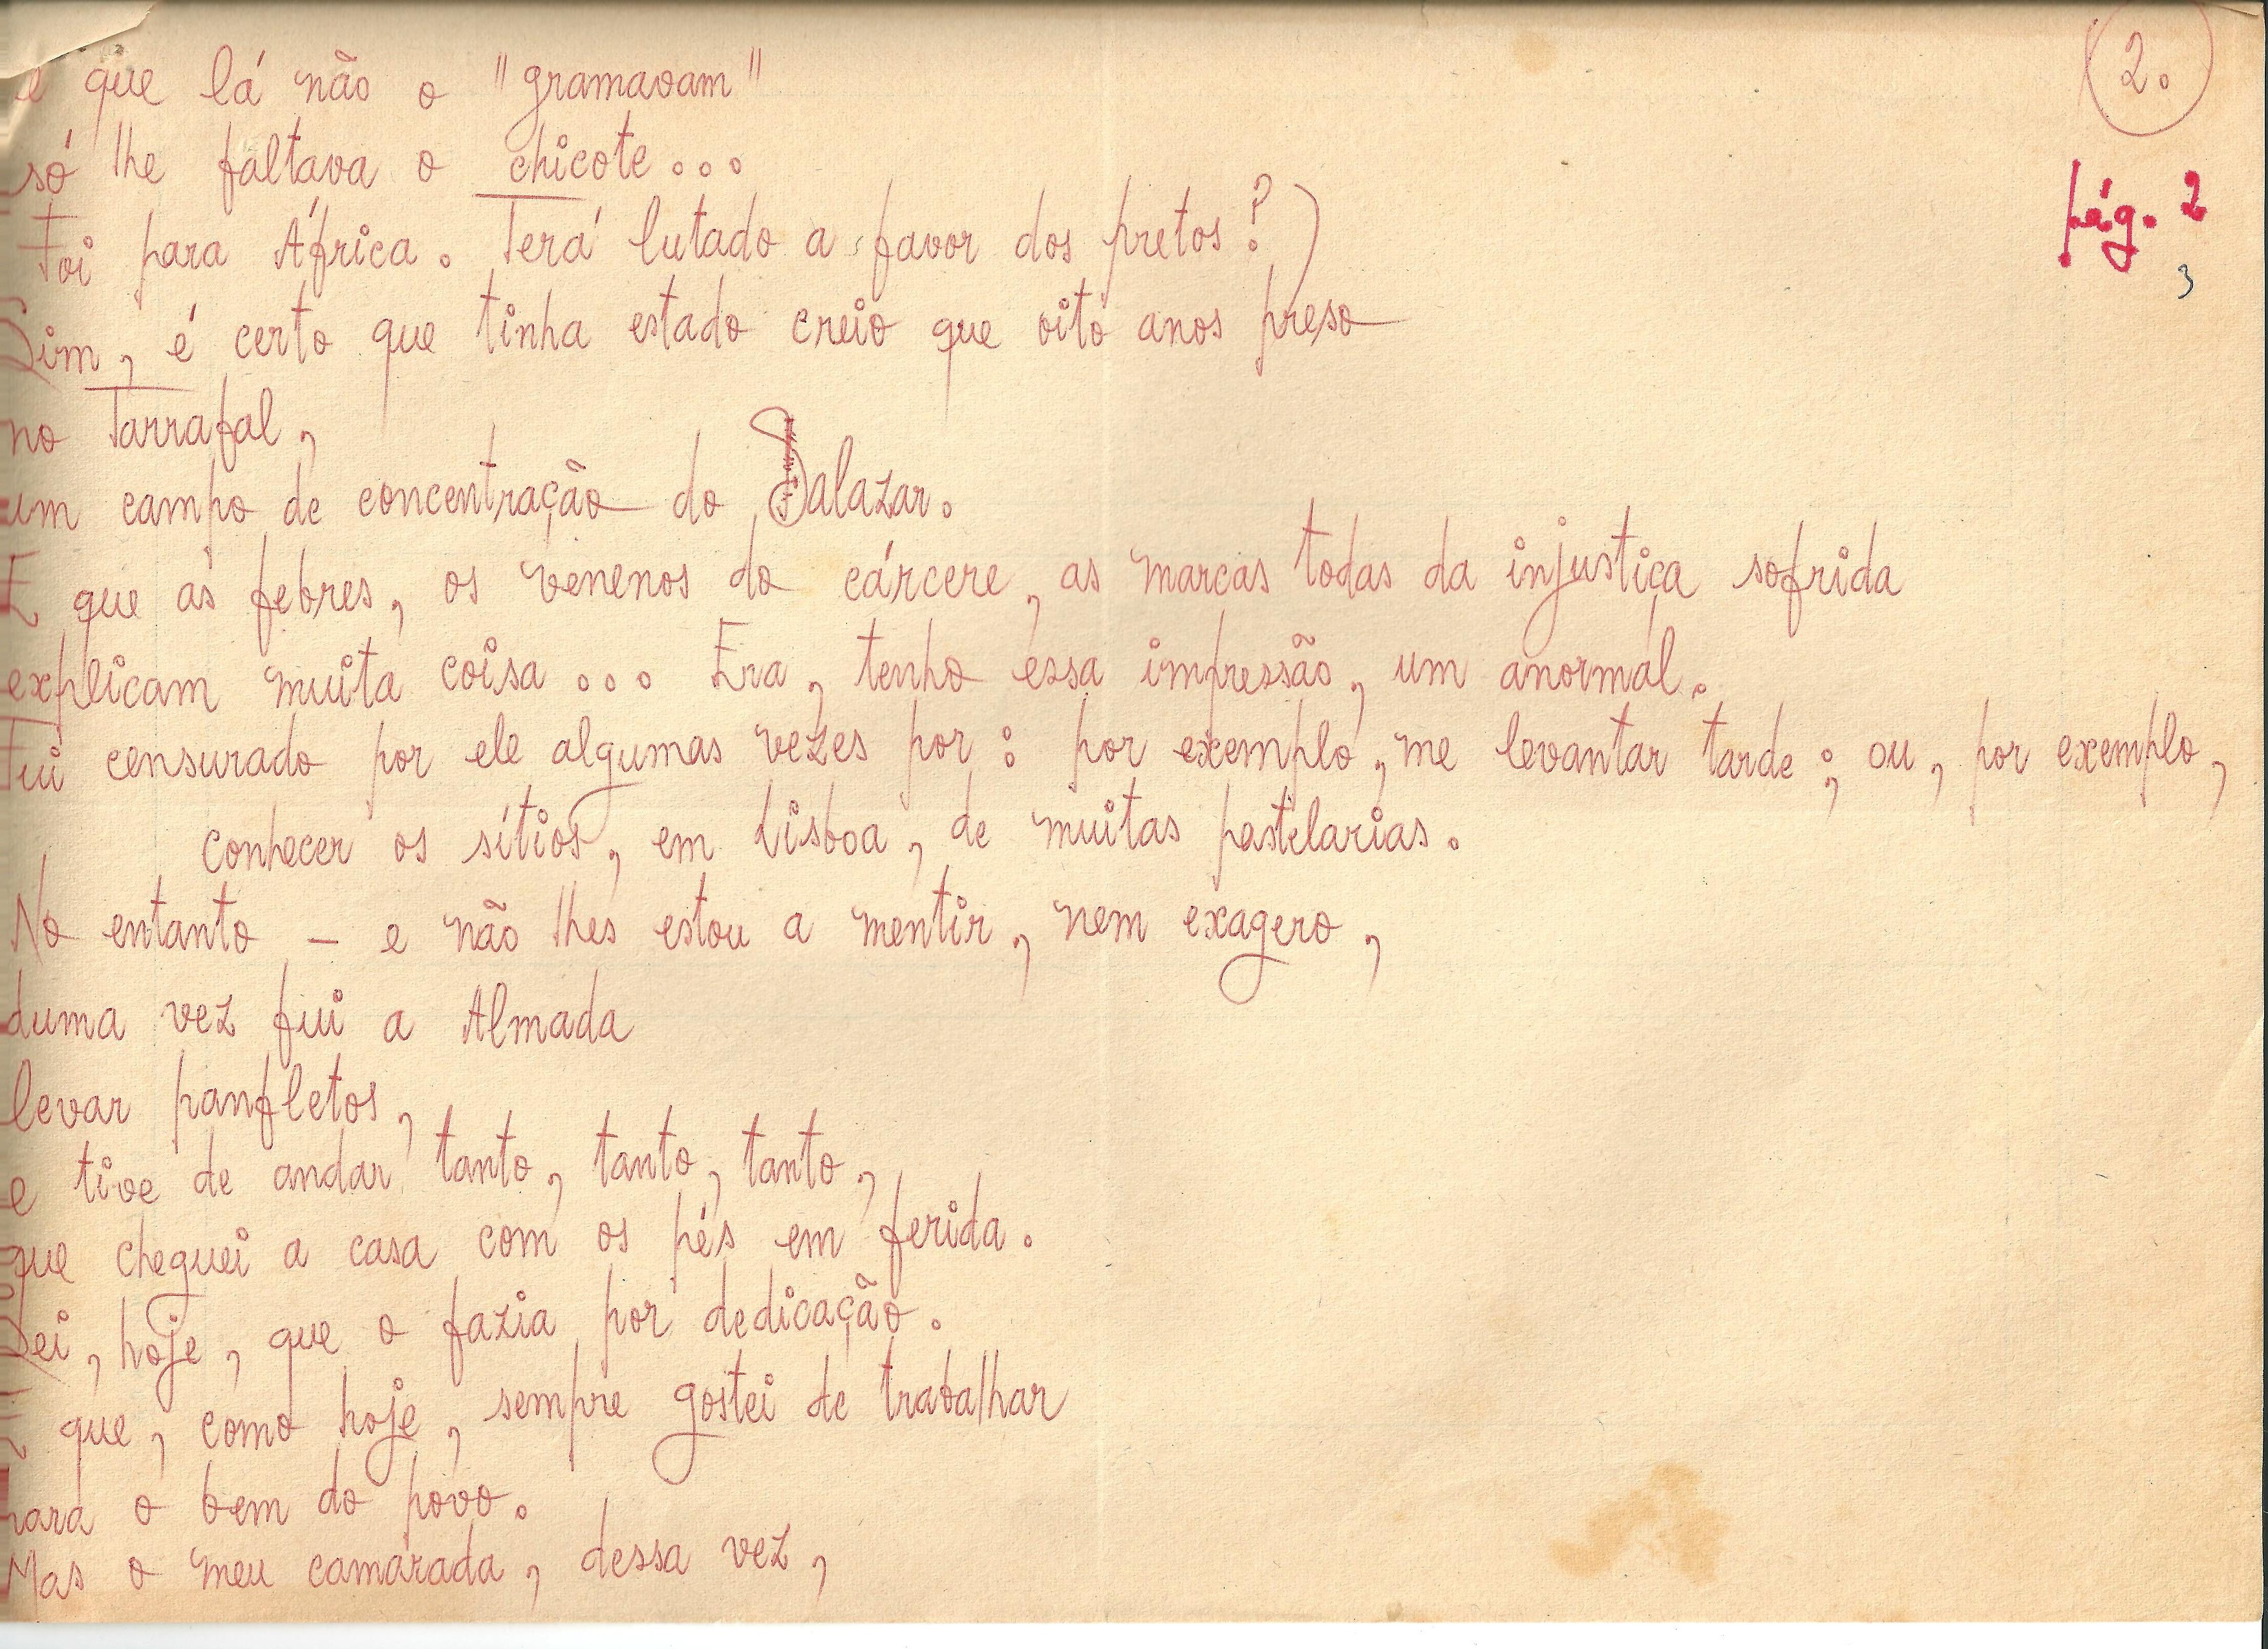 2.
pág. 2
3
e que lá não o "gramavam"
só lhe faltava o chicote...
Foi para África. Terá lutado a favor dos pretos?)
Sim, é certo que tinha estado creio que oito anos preso
no Tarrafal,
um campo de concentração do Salazar.
E que as febres, os venenos do cárcere, as marcas todas da injustiça sofrida
explicam muita coisa... Era, tenho essa impressão, um anormal.
Fui censurado por ele algumas vezes por: por exemplo, me levantar tarde; ou, por exemplo,
conhecer os sítios, em Lisboa, de muitas pastelarias.
No entanto – e não lhes estou a mentir, nem exagero,
duma vez fui a Almada
levar panfletos,
e tive de andar tanto, tanto, tanto,
que cheguei a casa com os pés em ferida.
Sei, hoje, que o fazia por dedicação.
E que, como hoje, sempre gostei de trabalhar
para o bem do povo.
Mas o meu camarada, dessa vez,